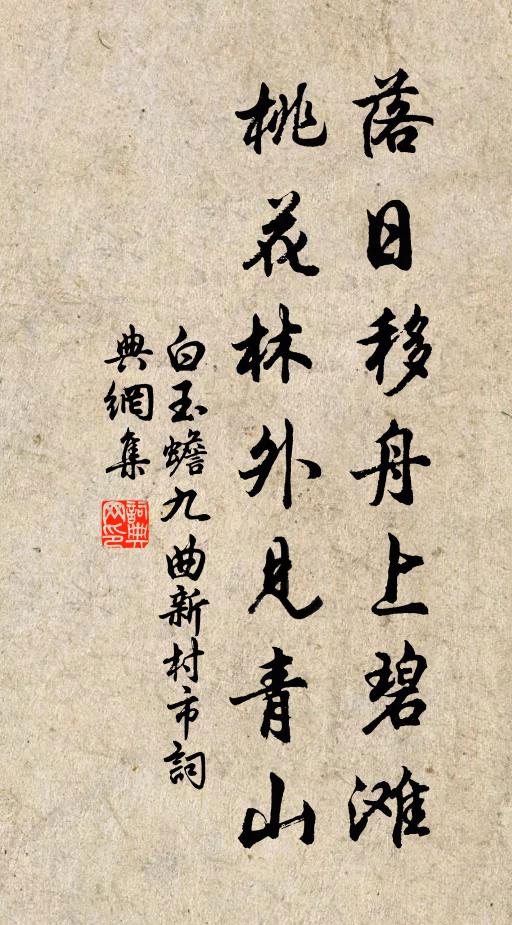 落日移舟上碧滩
桃花林外见青山
白玉蟾九曲新村市詞
典網集
詞典网印